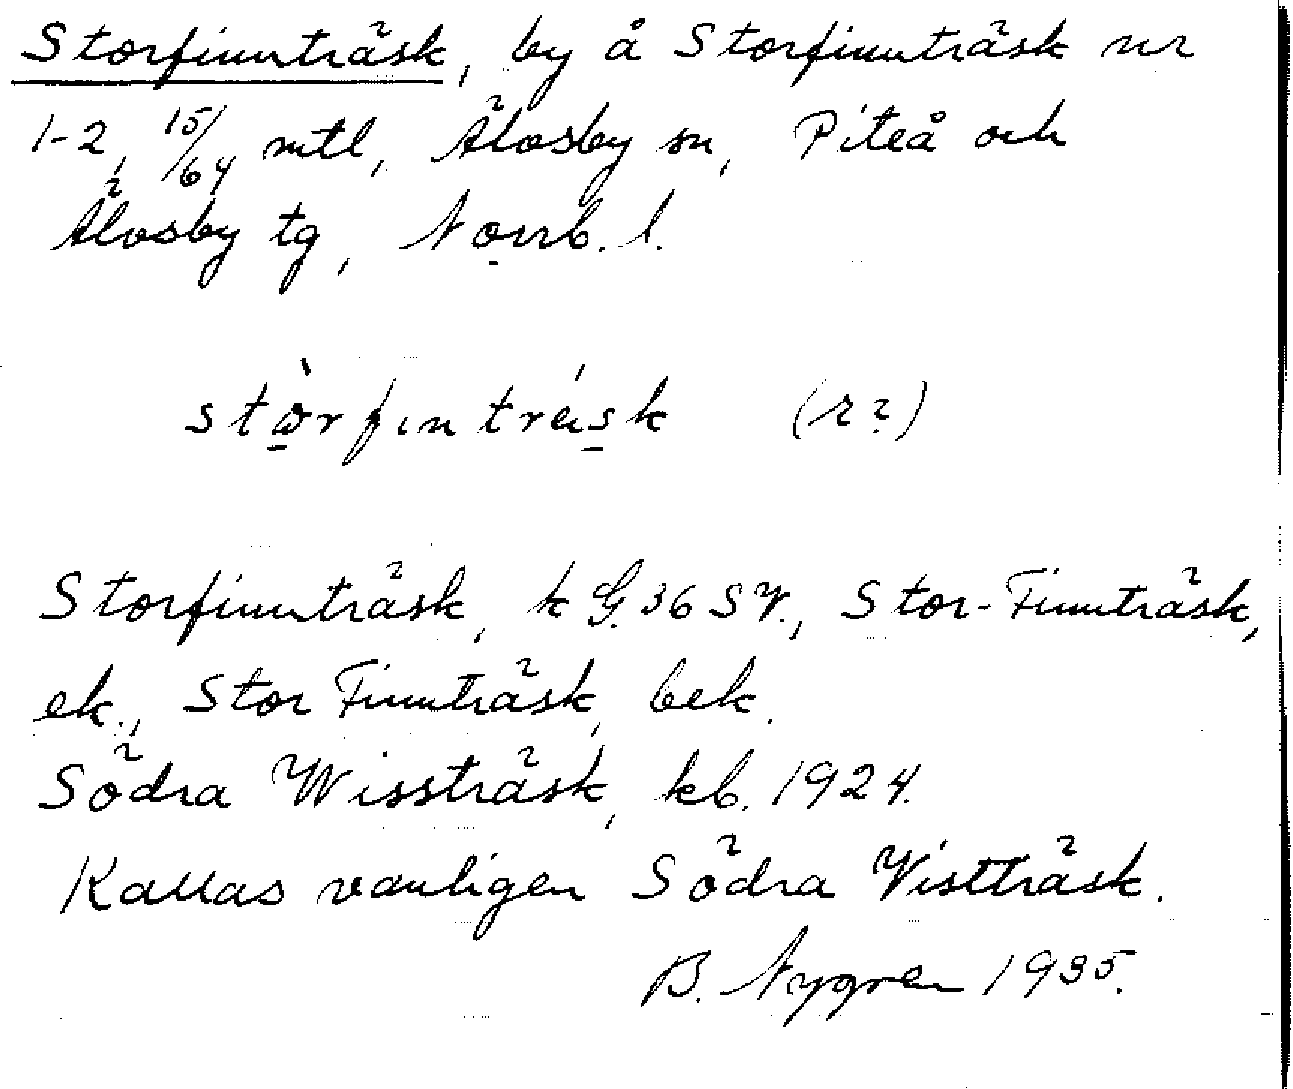 Storfinnträsk, by å Storfinnträsk nr
1-2, 15/64 mtl, Älvsby sn, Piteå och
Älvsby tg, Norrb. l.
stòrfinträsk (r?)
Storfinnträsk, k G. 36 SV., Stor-Finnträsk,
ek., Stor Finnträsk, bek.
Södra Wissträsk, kb. 1924.
Kallas vanligen Södra Vistträsk.
B. Nygren 1935.